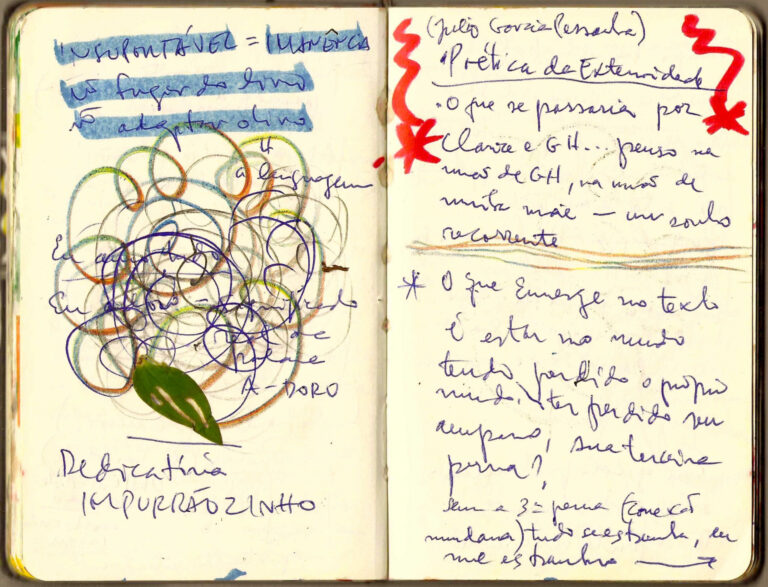 INSUPORTÁVEL = IMANÊNCIA
ñ fugir do livro
ñ adaptar o livro
a linguagem
Eu
Eu adoro = significado
A-DORO
Dedicatória
IMPURRÃOZINHO
(Julio Garcia Pessanha)
Poética da Extensidade
. O que se passaria por
Clarice e GH... penso na
mãos de GH, na mãos de
minha mãe — um sonho
recorrente
* O que Emerge no texto
é estar no mundo
tendo perdido o próprio
mundo. ter perdido seu
amparo, sua terceira
perna?
sem a 3ª perna (conexão
mundana) tudo se estranha, eu
me estranho →